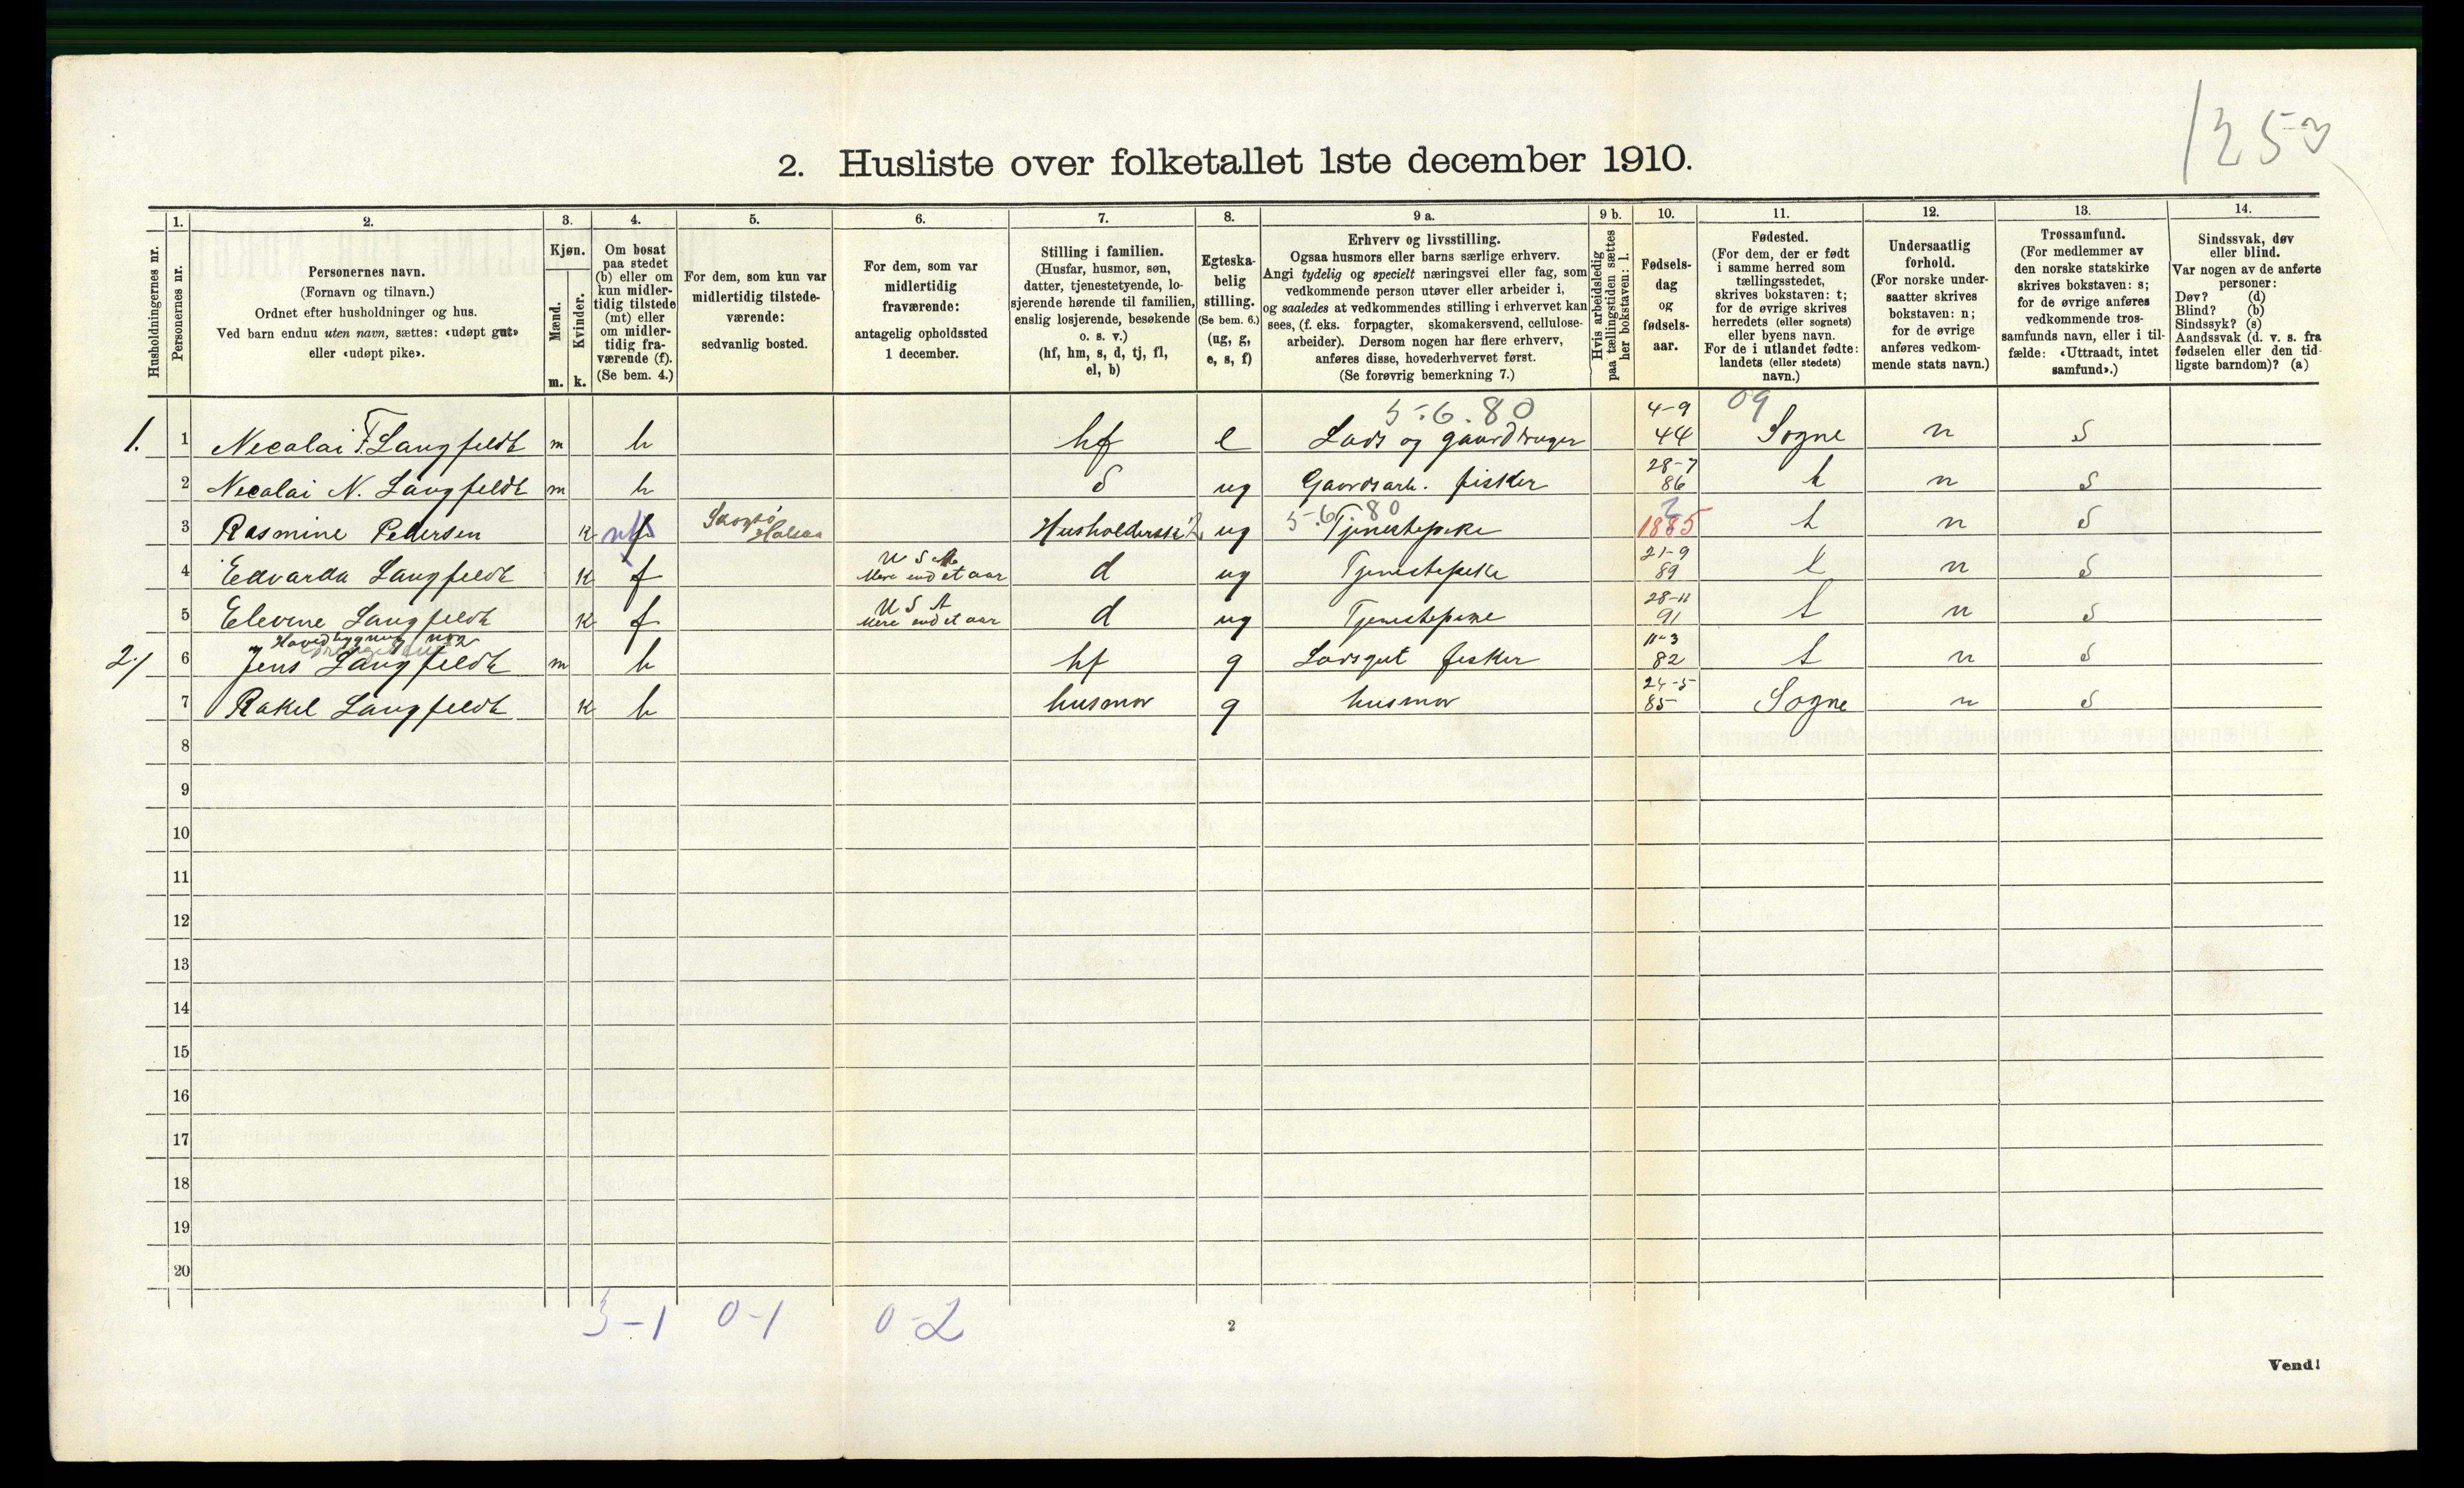 1253
2. Husliste over folketallet 1ste december 1910.
Husholdningernes nr.
1.
Personernes nr.
2.
Personernes navn.
(Fornavn og tilnavn.)
Ordnet efter husholdninger og hus.
Ved barn endnu uten navn, sættes: «udøpt gut»
eller «udøpt pike».
3.
Kjøn.
Mænd.
Kvinder.
m. k.
4.
Om bosat
paa stedet
(b) eller om
kun midler-
tidig tilstede
(mt) eller
om midler-
tidig fra-
værende (f).
(Se bem. 4.)
5.
For dem, som kun var
midlertidig tilstede-
værende:
sedvanlig bosted.
6.
For dem, som var
midlertidig
fraværende:
antagelig opholdssted
1 december.
7.
Stilling i familien.
(Husfar, husmor, søn,
datter, tjenestetyende, lo-
sjerende hørende til familien,
enslig losjerende, besøkende
o. s. v.)
(hf, hm, s, d, tj, fl,
el, b)
8.
Egteska-
belig
stilling.
(Se bem. 6.)
(ug, g,
e, s, f)
9 a.
Erhverv og livsstilling.
Ogsaa husmors eller barns særlige erhverv.
Angi tydelig og specielt næringsvei eller fag, som
vedkommende person utøver eller arbeider i,
og saaledes at vedkommendes stilling i erhvervet kan
sees, (f. eks. forpagter, skomakersvend, cellulose-
arbeider). Dersom nogen har flere erhverv,
anføres disse, hovederhvervet først.
(Se forøvrig bemerkning 7.)
9 b.
Hvis arbeidsledig
paa tællingstiden sættes
her bokstaven: l.
10.
Fødsels-
dag
og
fødsels-
aar.
11.
Fødested.
(For dem, der er født
i samme herred som
tællingsstedet,
skrives bokstaven: t;
for de øvrige skrives
herredets (eller sognets)
eller byens navn.
For de i utlandet fødte:
landets (eller stedets)
navn.)
12.
Undersaatlig
forhold.
(For norske under-
saatter skrives
bokstaven: n;
for de øvrige
anføres vedkom-
mende stats navn.)
13.
Trossamfund.
(For medlemmer av
den norske statskirke
skrives bokstaven: s;
for de øvrige anføres
vedkommende tros-
samfunds navn, eller i til-
fælde: «Uttraadt, intet
samfund».)
14.
Sindssvak, døv
eller blind.
Var nogen av de anførte
personer:
Døv? (d)
Blind? (b)
Sindssyk? (s)
Aandssvak (d. v. s. fra
fødselen eller den tid-
ligste barndom)? (a)
5.6.80 4-9 09
1. 1 Necolai F. Langfeldt m b hf e Lods og gaardbruger 44 Sogne n S
28-7
2 Necolai N. Langfeldt m b S ug Gaardsarb. fisker 86 t n S
5.6.80
3 Rasmine Pedersen K ug Tjenestepike 1885 t n S
U S A 21-9
4 Edvarda Langfeldt K f Mere end et aar d ug Tjenestepike 89 t n S
U S A 28-11
5 Elevine Langfeldt K f Mere end et aar d ug Tjenestepike 91 t n S
11-3
2. 6 Jens Langfeldt m b hf g Lodsgut fisker 82 t n S
24-5
7 Rakel Langfeldt K b husmor g husmor 85 Sogne n S
8
9
10
11
12
13
14
15
16
17
18
19
20
3-1 0-1 0-2
2
Vend!